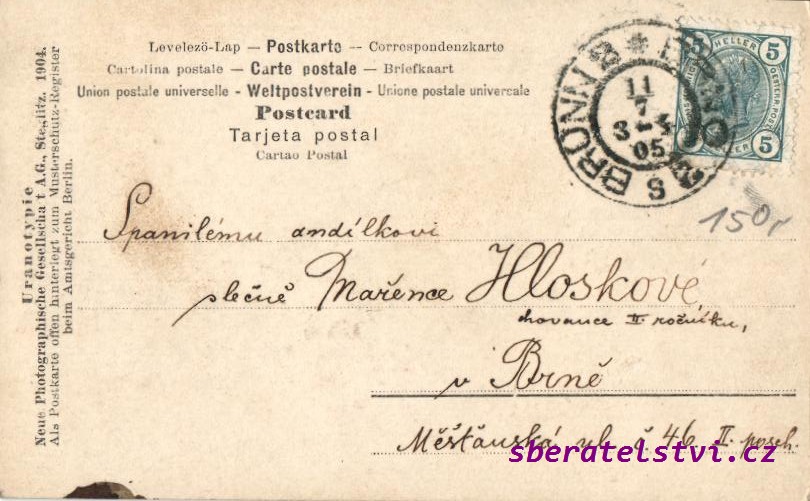 Levelező-Lap — Postkarte — Correspondenzkarte
Cartolina postale — Carte postale — Briefkaart
Union postale universelle - Weltpostverein - Unione postale universale
Postcard
Tarjeta postal
Cartao Postal
Uranotypie
Neue Photographische Gesellschaft A.G., Steglitz. 1904.
Als Postkarte offen hinterlegt zum Musterschutz-Register
beim Amtsgericht Berlin.
5 HELLER 5
5 5
BRÜNN 2 * BRNO 2
11
7
3-4
05
S
150,-
Spanilému andílkovi
slečně Mařence Hloskové,
chovance II ročníku,
v Brně
Měšťanská ul. č 46 II. posch.
sberatelstvi.cz